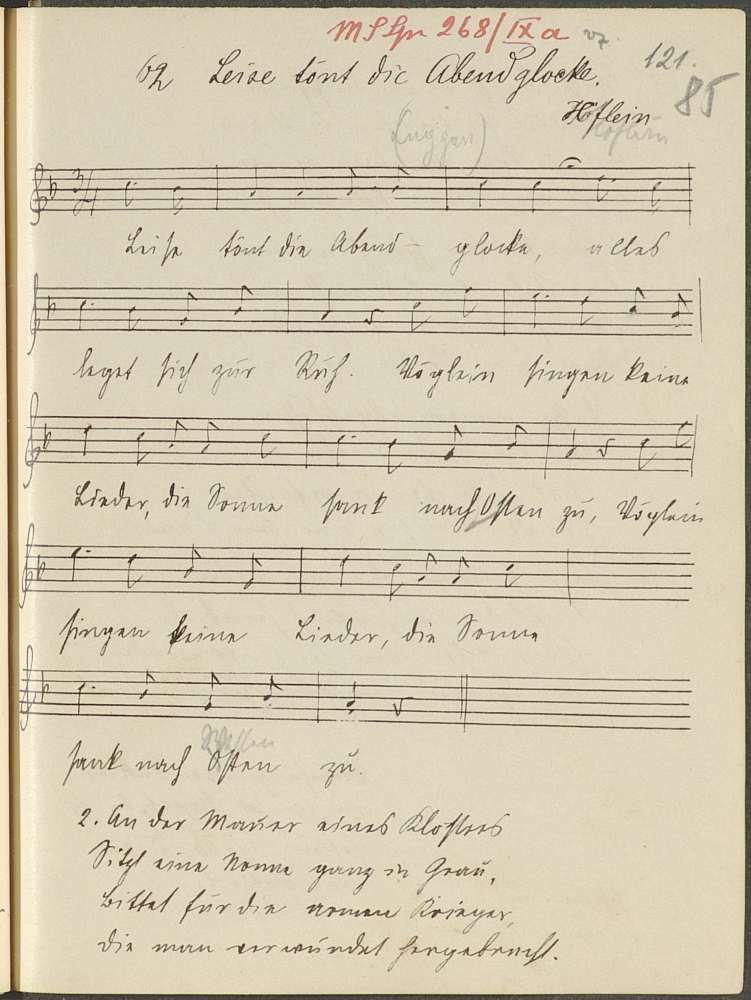 MS Gr 268/IXa
121.
62 Leise tönt die Abendglocke.
85
Höflein
Höflein
3/4
Leise tönt die Abend- glocke, alles
leget sich zur Ruh. Vöglein singen keine
Lieder, die Sonne sank nach Osten zu, Vöglein
singen keine Lieder, die Sonne
Westen
sank nach Osten zu.
2. An der Mauer eines Klosters
Sitzt eine Nonne ganz in Grau,
Bittet für die armen Krieger,
die man verwundet hergebracht.